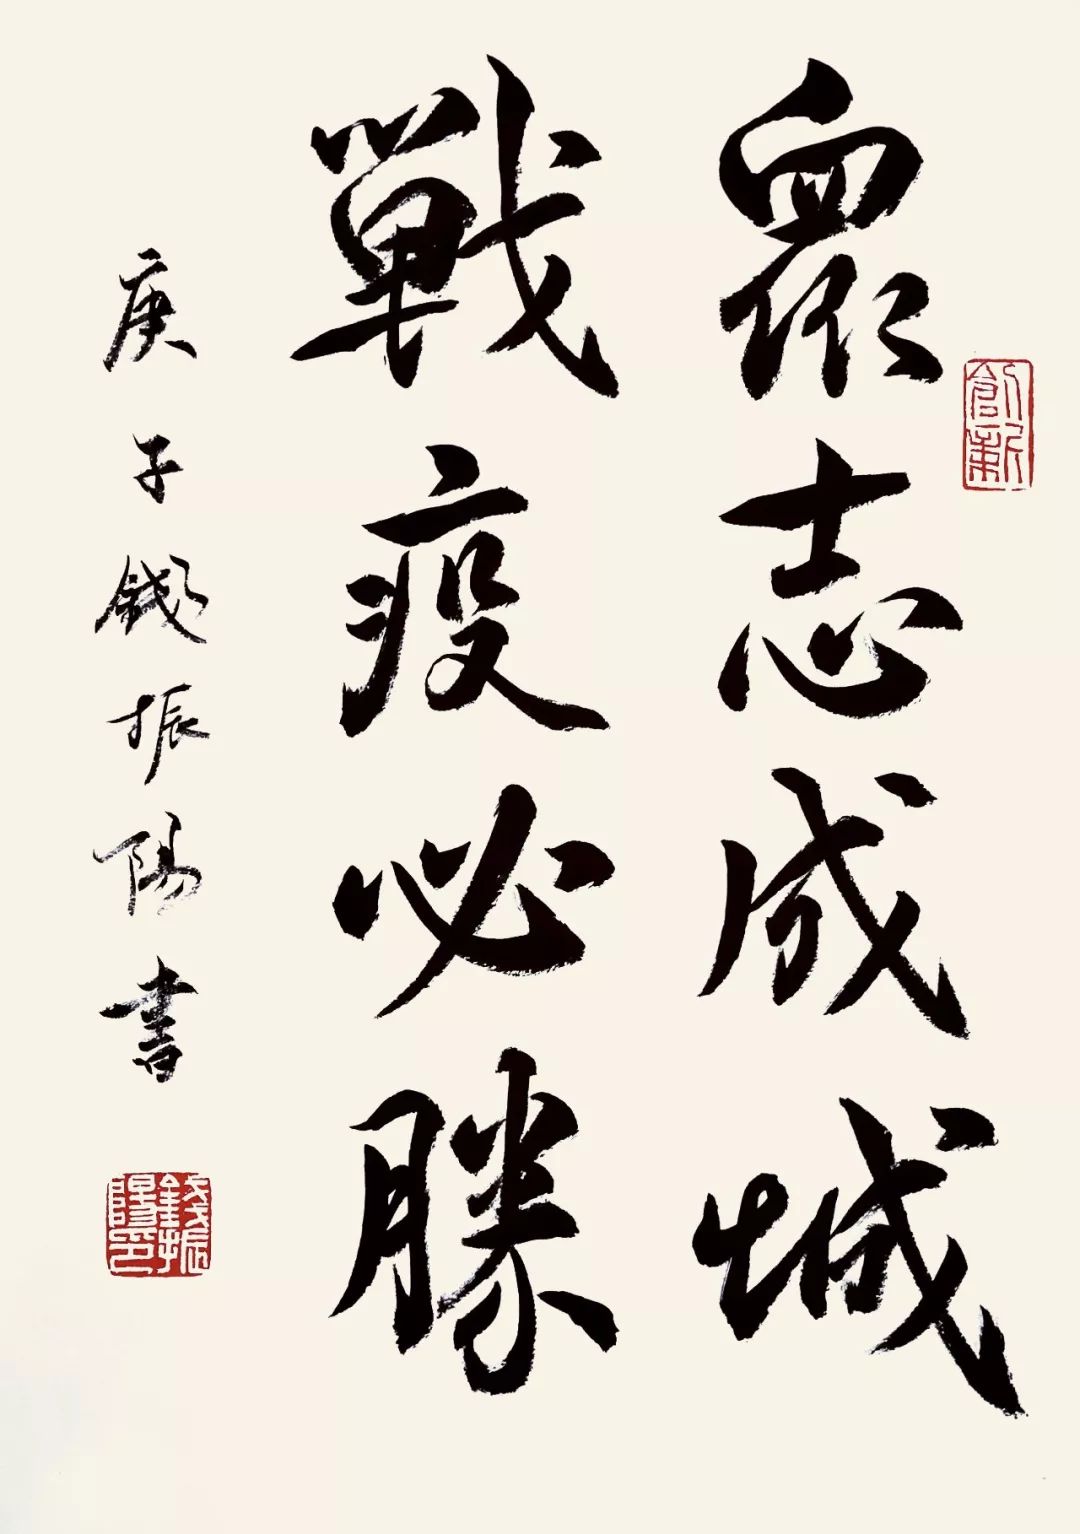 眾志成城
戰疫必勝
庚子錢振陽書
創新
錢振陽印